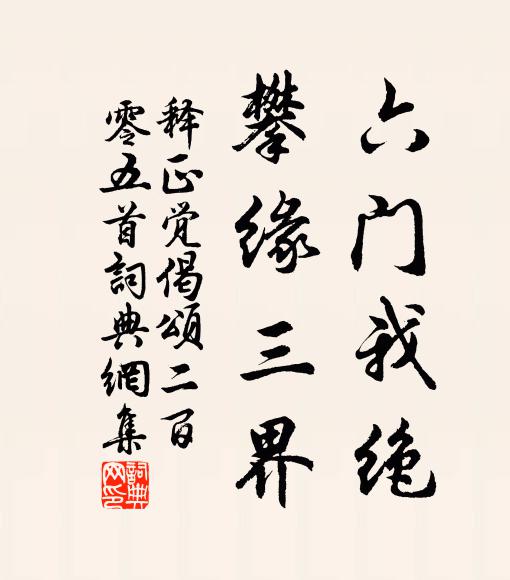 六门我绝
攀缘三界
释正觉偈颂二百
零五首詞典網集
詞典
网印